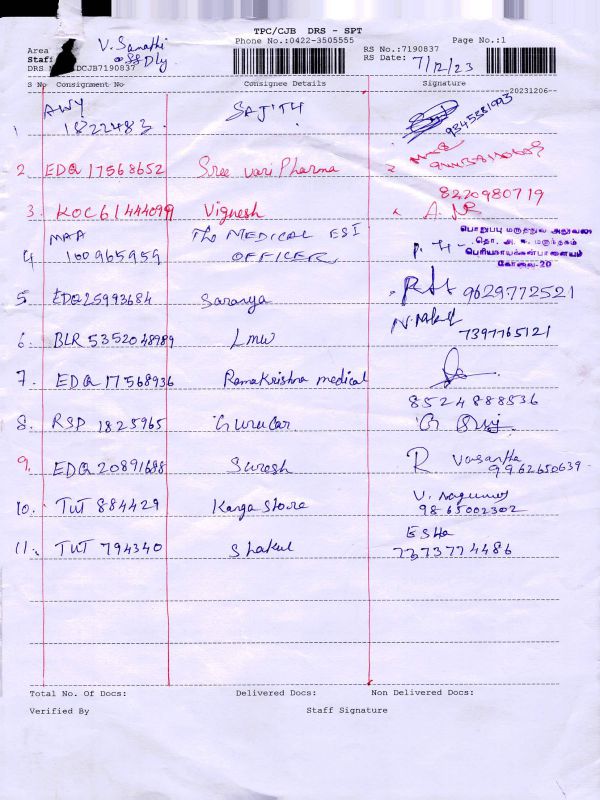 TPC/CJB DRS - SPT
Phone No.:0422-3505555 Page No.:1
Area V. Sanathi RS No.:7190837
Staff Dly RS Date: 7/12/23
DRS DCJB7190837
S No Consignment No Consignee Details Signature
--20231206--
AWY SAJITH
1 1822483 9345381993
2 EDQ 17568652 Sree vari Pharma
8220980719
3. KOC 61444099 Vignesh
MAA THE MEDICAL ESI
4 100965959 OFFICER
பொறுப்பு மருத்துவ அலுவலர்
தொ. அ. ஈ. மருந்தகம்
பெரியநாயக்கன்பாளையம்
கோவை-20
5 EDQ 25993684 Saranya 9629772521
6. BLR 5352048989 Lmw 7397765121
7. EDQ 17568936 Ramakrishna medical
8524888536
8. RSP 1825965 Gurucar
9. EDQ 20891688 Suresh R. Vasantha
9962650639
10. TUT 884429 Kanga store V. 
9865002302
11. TUT 794340 Shakul
7373774486
Total No. Of Docs: Delivered Docs: Non Delivered Docs:
Verified By Staff Signature